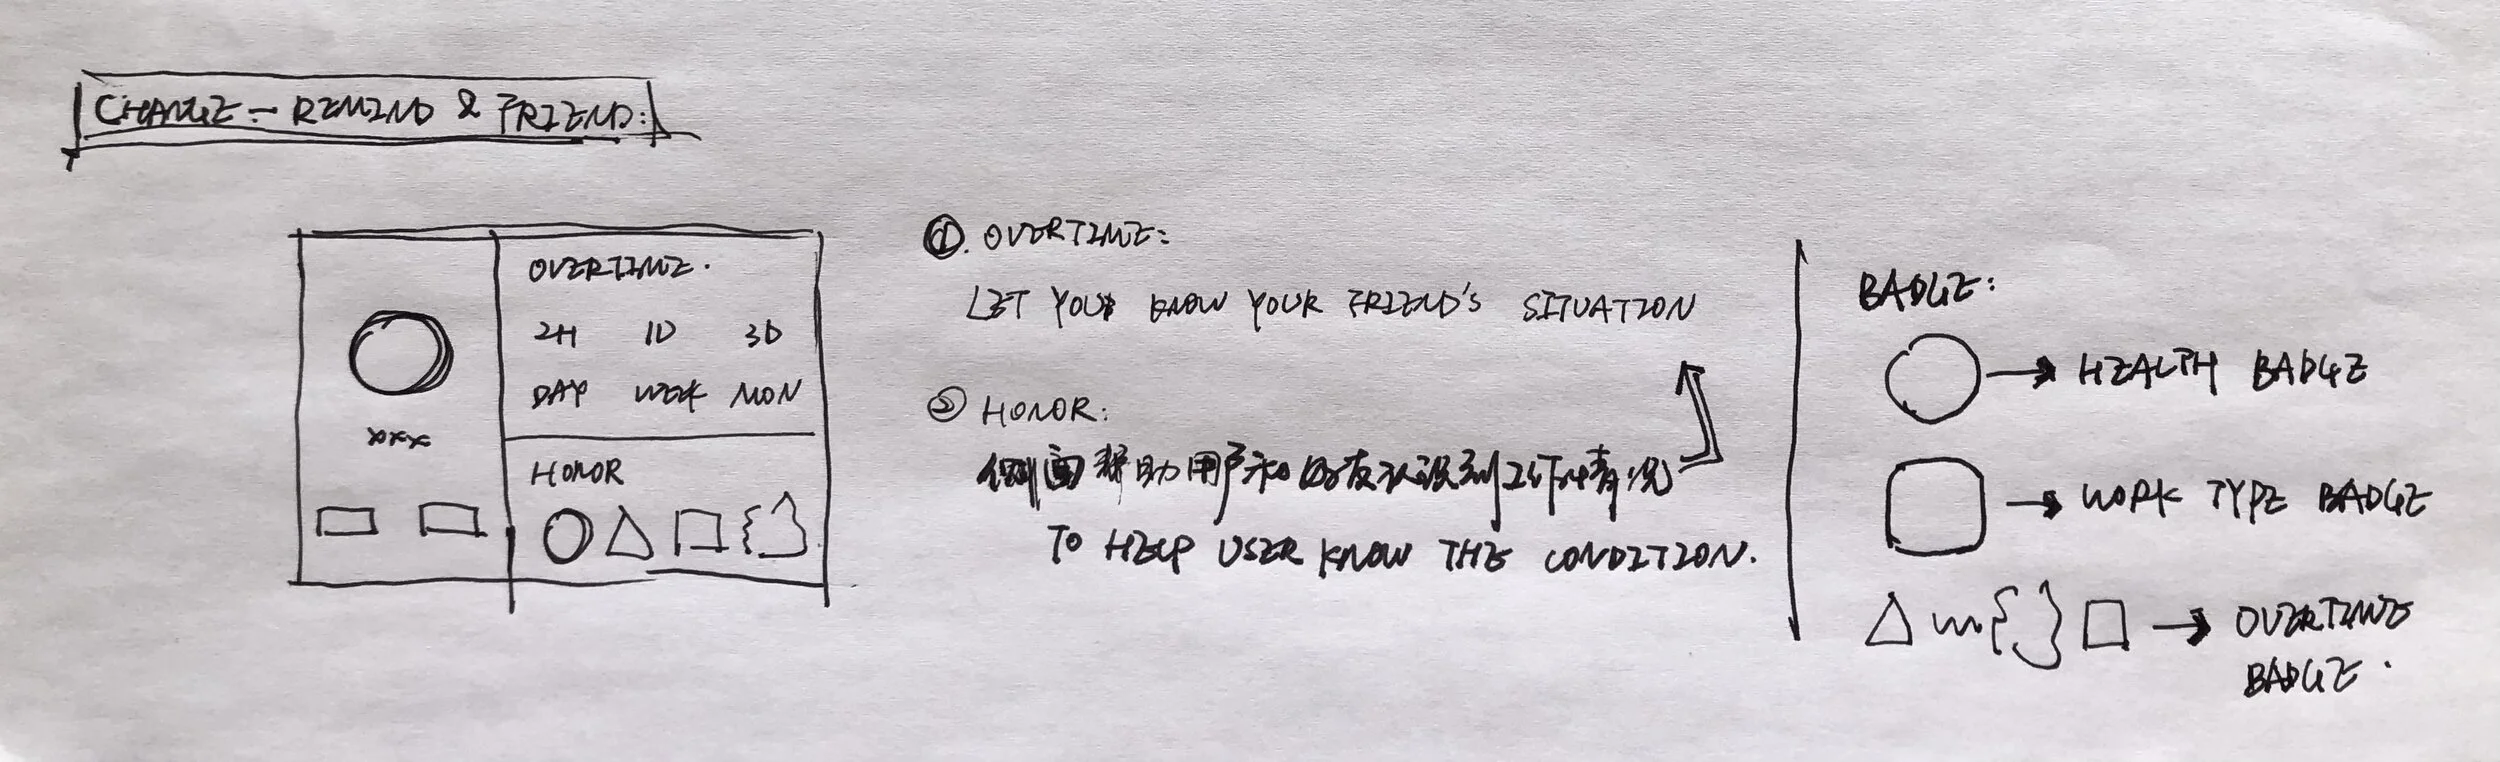 CHANGE - REMIND & FRIEND:
OVERTIME.
2H 1D 3D
DAY WEEK MON
xxx
HONOR
①. OVERTIME:
LET YOU KNOW YOUR FRIEND'S SITUATION
② HONOR:
侧面帮助用户和好友认识到工作情况
TO HELP USER KNOW THE CONDITION.
BADGE:
HEALTH BADGE
WORK TYPE BADGE
OVERTIME
BADGE.